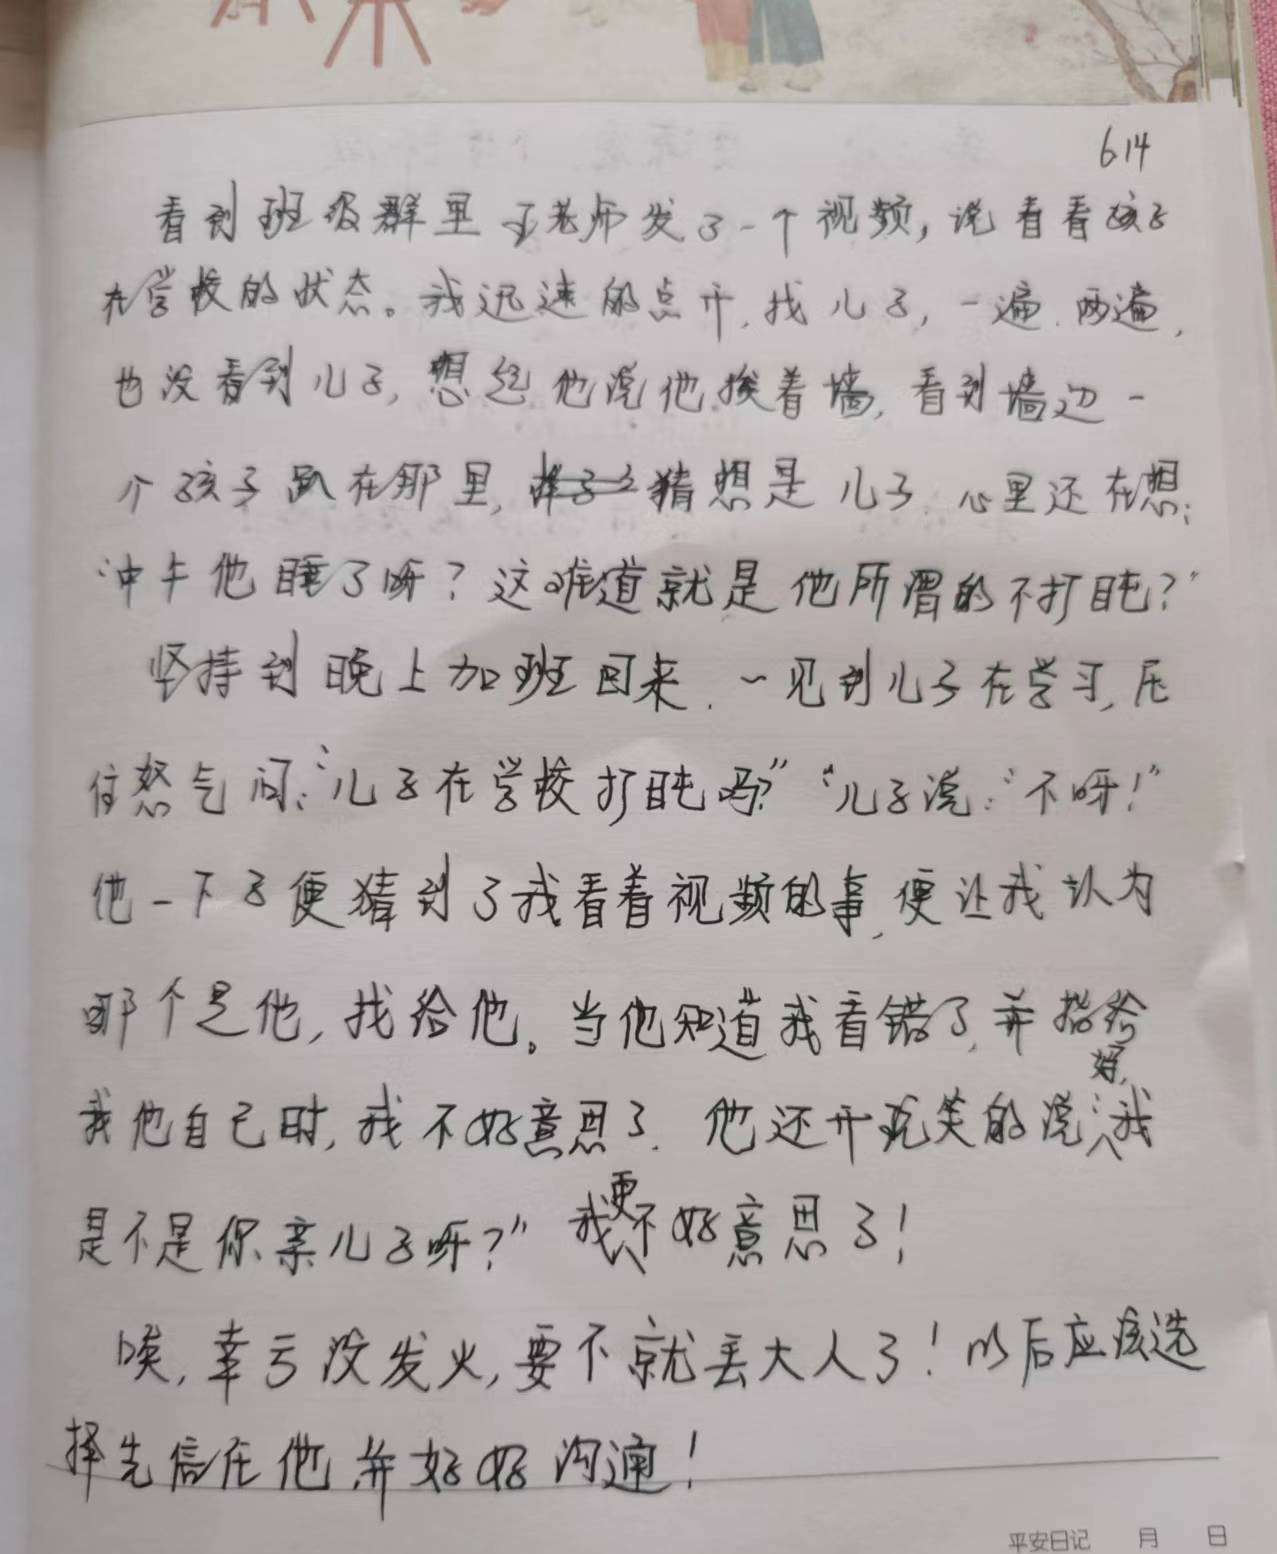 614
看到班级群里王老师发了一个视频,说看看孩子
在学校的状态。我迅速的点开,找儿子,一遍.两遍,
也没看到儿子,想起他说他挨着墙,看到墙边一
个孩子趴在那里,猜想是儿子.心里还在想:
"中午他睡了呀?这难道就是他所谓的不打盹?"
坚持到晚上加班回来.一见到儿子在学习,压
住怒气问:"儿子在学校打盹吗?""儿子说:"不呀!"
他一下子便猜到了我看着视频的事,便让我认为
哪个是他,找给他。当他知道我看错了,并指给
我他自己时,我不好意思了.他还开玩笑的说:"妈,我
是不是你亲儿子呀?"我更不好意思了!
唉,幸亏没发火,要不就丢大人了!以后应该选
择先信任他并好好沟通!
平安日记 月 日